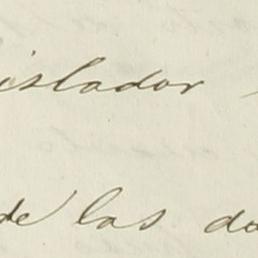 islador
de las do